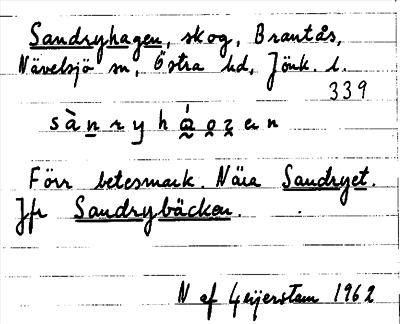 Sandryhagen, skog, Brantås,
Nävelsjö sn, Östra hd, Jönk. l.
339
Förr betesmark. Nära Sandryet.
Jfr Sandrybäcken.
N af Geijerstam 1962